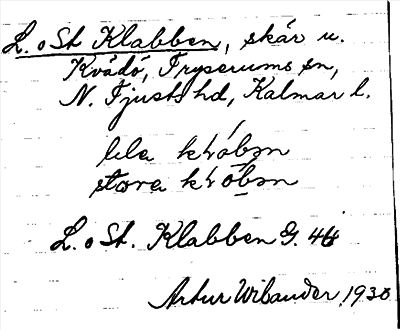 L. o St Klabben, skär u.
Kvädö, Tryserums sn,
N. Tjusts hd, Kalmar l.
lila
stora
L. o St. Klabben G. 44
Artur Wibander 1930